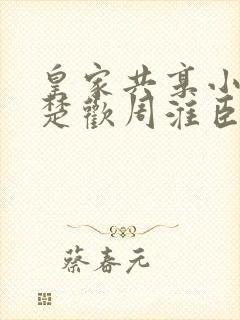 皇家共享小
楚歡周淮臣
蔡春元